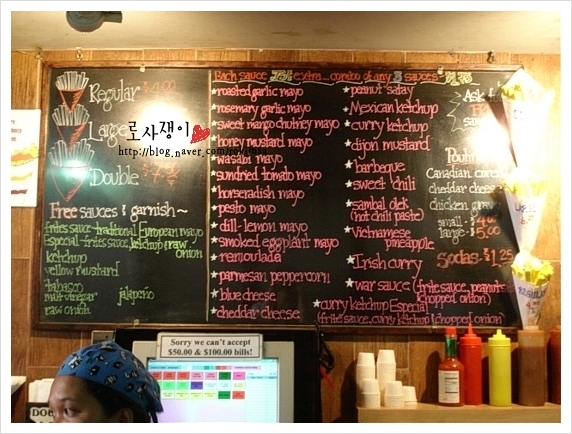 Each sauce 75¢ extra... combo of any 3 sauces
Regular
Large
Double
로사쟁이
http://blog.naver.com/
Free sauces & garnish~
fries sauce-traditional European mayo
Especial-fries sauce, ketchup & raw onion
ketchup
yellow mustard
tabasco
malt vinegar
jalapeño
raw onion
roasted garlic mayo
rosemary garlic mayo
sweet mango chutney mayo
honey mustard mayo
wasabi mayo
sundried tomato mayo
horseradish mayo
pesto mayo
dill-lemon mayo
smoked eggplant mayo
remoulada
parmesan peppercorn
blue cheese
cheddar cheese
peanut satay
Mexican ketchup
curry ketchup
dijon mustard
barbeque
sweet chili
sambal olek
(hot chili paste)
Vietnamese
pineapple
Irish curry
war sauce (frite sauce, peanut
chopped onion)
curry ketchup Especial
(frite sauce, curry ketchup, chopped onion)
Ask
Canadian
cheddar cheese
chicken gravy
small-
large- $5.00
Sodas- $1.25
REGULAR
Sorry we can't accept
$50.00 & $100.00 bills!